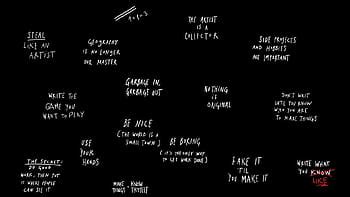 1+1=3
THE ARTIST
IS A
COLLECTOR
STEAL
LIKE AN
ARTIST
GEOGRAPHY
IS NO LONGER
OUR MASTER
SIDE PROJECTS
AND HOBBIES
ARE IMPORTANT
GARBAGE IN,
GARBAGE OUT
NOTHING
IS
ORIGINAL
WRITE THE
GAME YOU
WANT TO PLAY
DON'T WAIT
UNTIL YOU KNOW
WHO YOU ARE
TO MAKE THINGS
BE NICE
(THE WORLD IS A
SMALL TOWN)
USE
YOUR
HANDS
BE BORING
(IT'S THE ONLY WAY
TO GET WORK DONE)
THE SECRET:
DO GOOD
WORK, THEN PUT
IT WHERE PEOPLE
CAN SEE IT
FAKE IT
'TIL
YOU MAKE IT
WRITE WHAT
YOU KNOW
LIKE
MAKE
THINGS,
KNOW
THYSELF